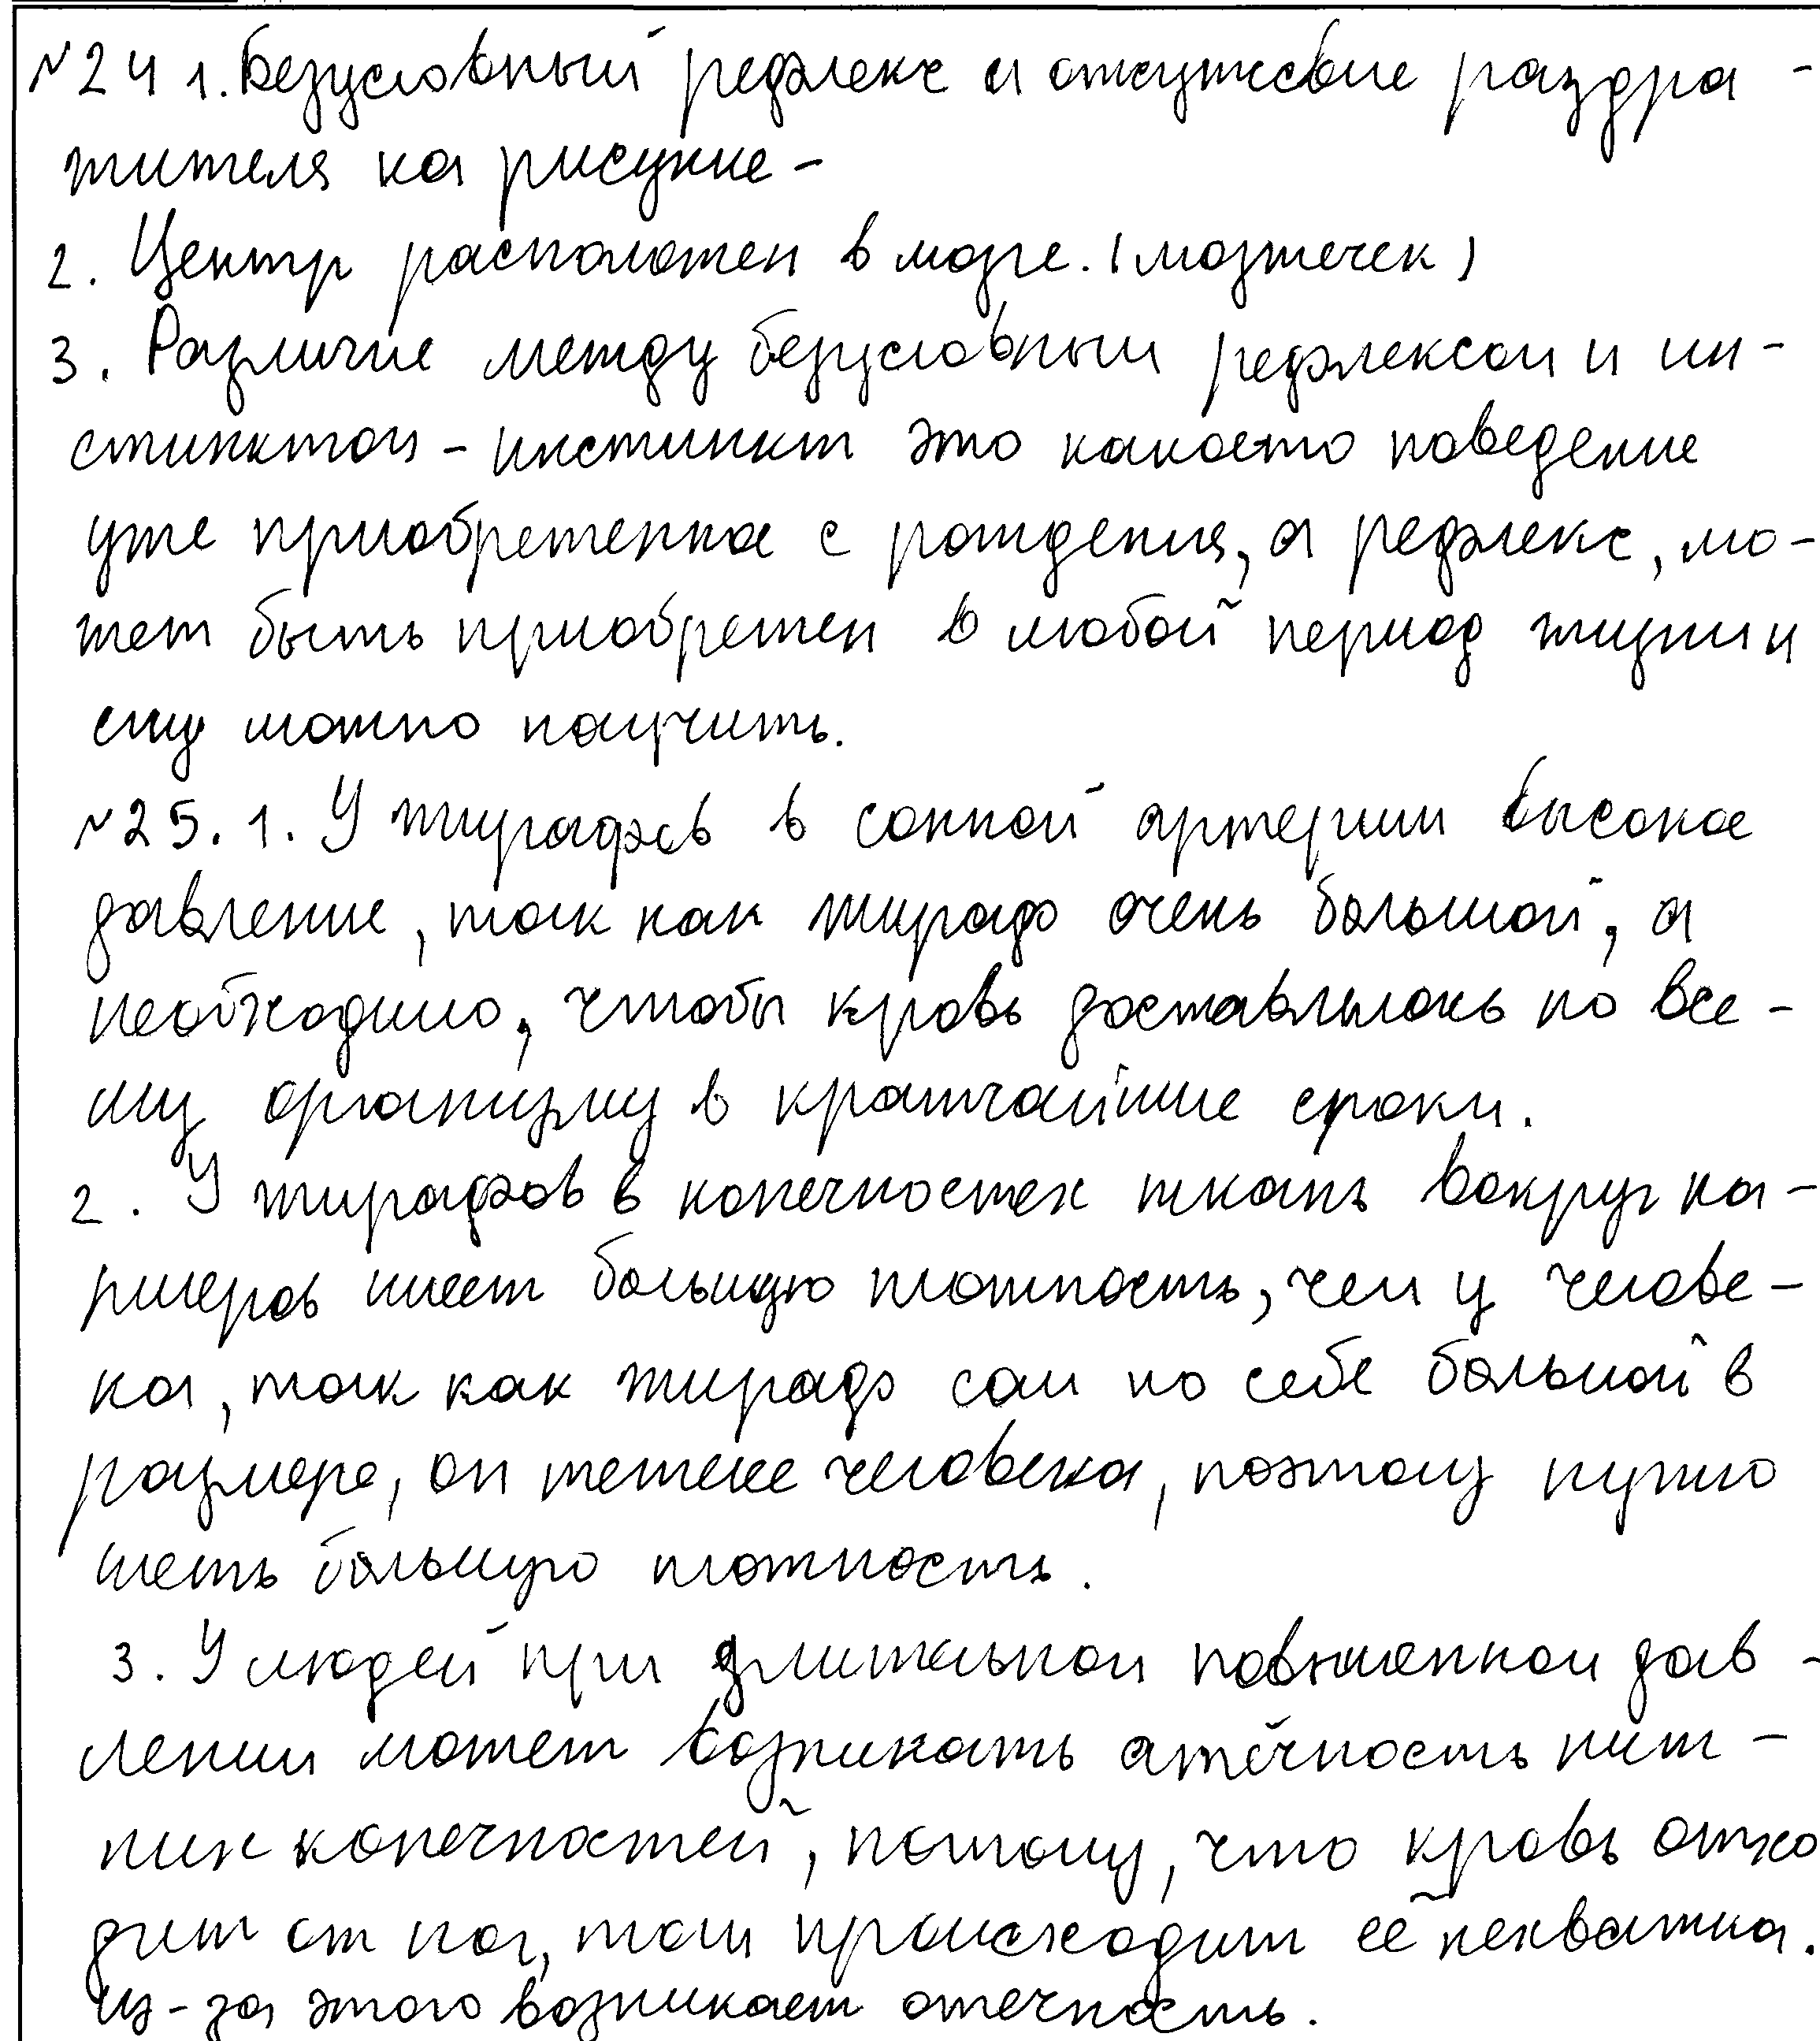 №24 1. Безусловный рефлекс и отсутсвие раздра-
жителя на рисунке -
2. Центр расположен в мозге. (мозжечек)
3. Различие между безусловным рефлексом и ин-
стинктом - инстинкт это какоето поведение
уже приобретенное с рождения, а рефлекс, мо-
жет быть приобретен в любой период жизни и
ему можно научить.
№25. 1. У жирафов в сонной артерии высокое
давление, так как жираф очень большой, а
необходимо, чтобы кровь доставлялась по все-
му организму в кратчайшие сроки.
2. У жирафов в конечностех ткань вокруг ка-
пиляров имеет большую плотность, чем у челове-
ка, так как жираф сам по себе большой в
размере, он тежеле человека, поэтому нужно
иметь большую плотность.
3. У людей при длительном повышенном дав-
лении может возникать отёчность ниж-
них конечностей, потому, что кровь отхо
дит от ног, там происходит её нехватка.
Из-за этого возникает отечность.